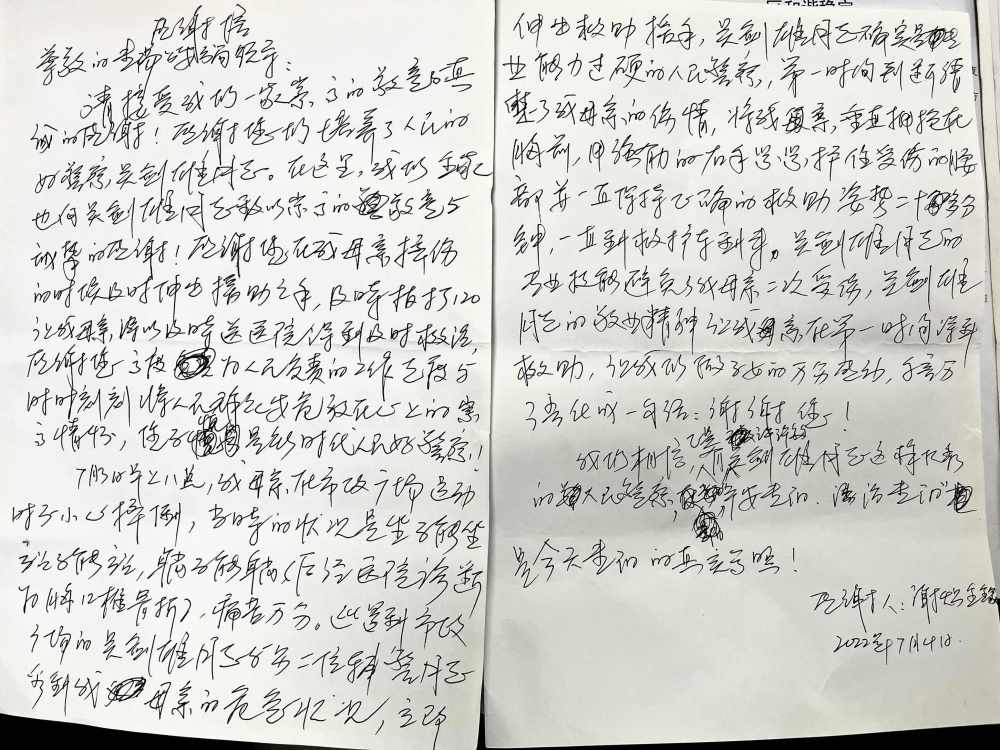 感谢信
尊敬的娄葑公安分局领导：
请接受我们一家崇高的敬意与真
诚的感谢！感谢您们培养了人民的
好警察，吴剑雄同志。在这里，我们全家
也向吴剑雄同志致以崇高的敬意与
诚挚的感谢！感谢您在我母亲摔伤
的时候及时伸出援助之手，及时拨打120
让我母亲得以及时送医院得到及时救治，
感谢您高度为人民负责的工作态度与
时时刻刻将人民群众生危放在心上的崇
高情怀，您不愧是新时代人民好警察！
7月3日早上八点，我母亲在市政广场运动
时不小心摔倒，当时的状况是坐不能坐
站不能站，躺不能躺（后经医院诊断
为胸12椎骨折），痛苦万分。巡逻到市政
广场的吴剑雄同志与另二位辅警同志
看到我母亲的危急状况，立即
伸出救助援手，吴剑雄同志确实是
业能力过硬的人民警察，第一时间判断清
楚了我母亲的伤情，将我母亲垂直拥抱在
胸前，用强劲的右手牢牢护住受伤的腰
部并一直保持正确的救助姿势二十多分
钟，一直到救护车到来。吴剑雄同志的
专业技能避免了我母亲二次受伤，吴剑雄
同志的敬业精神让我母亲在第一时间得到
救助，让我们做子女的万分感动，千言万
语化成一句话：谢谢您！
我们相信，正是有许许多多
吴剑雄同志这样优秀
的人民警察，平安娄葑、法治娄葑
是今天娄葑的真实写照！
感谢人：谢
2022年7月4日